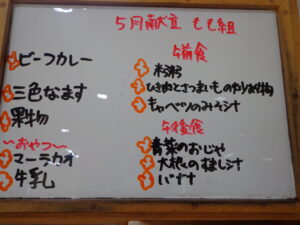 5月献立 もも組
ビーフカレー
三色なます
果物
〜おやつ〜
マーラカオ
牛乳
午前食
米粥
ひき肉とさつまいものやわらか物
キャベツのみそ汁
午後食
青菜のおじや
大根のすまし汁
バナナ